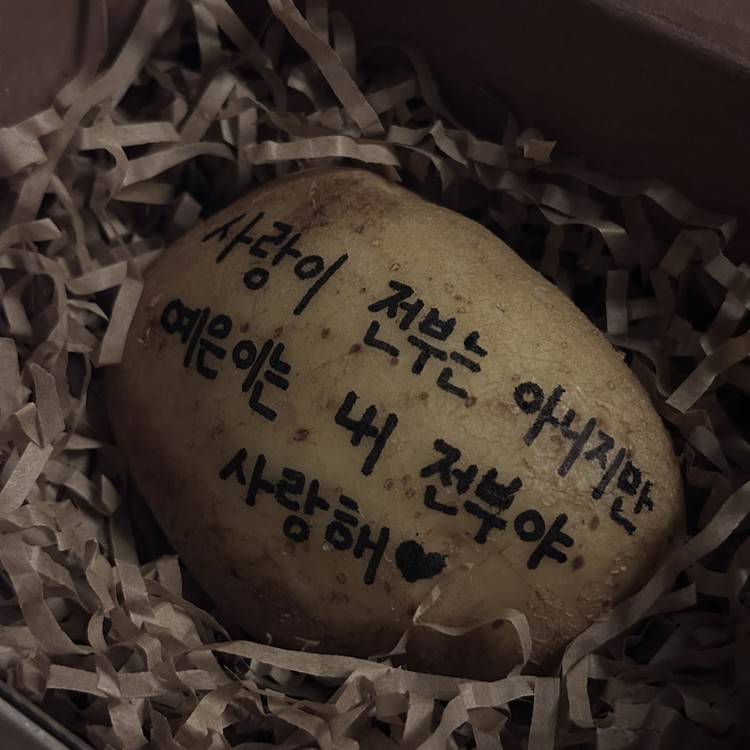 사랑이 전부는 아니지만
예은이는 내 전부야
사랑해♥